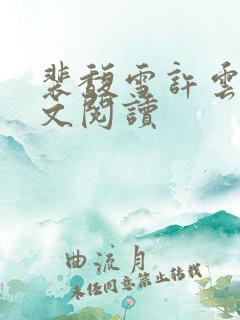 裴馥雪許雲
文閱讀
曲流月
未任同意禁止转载